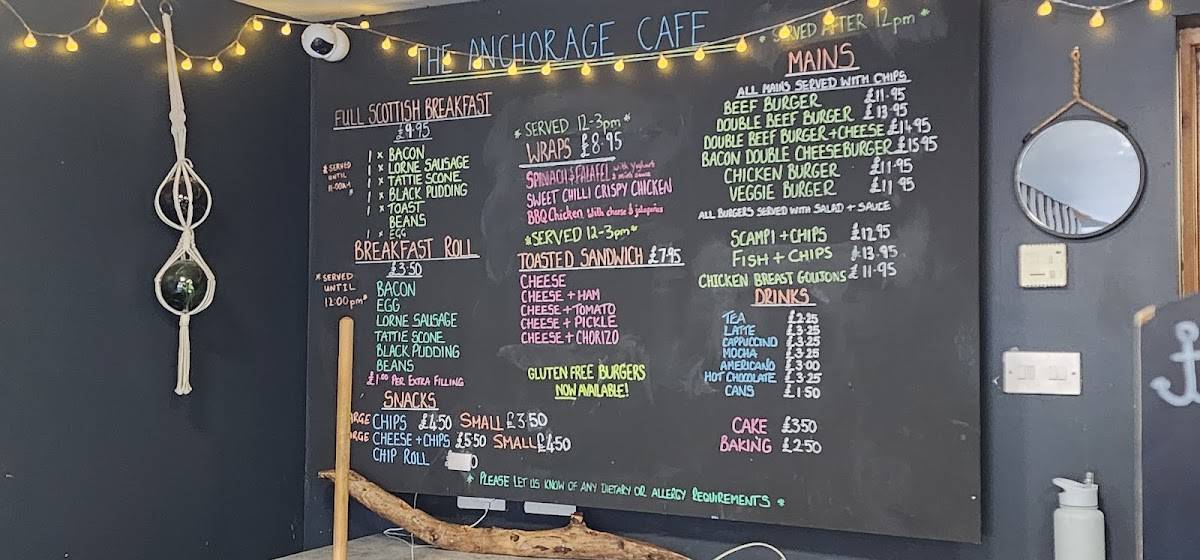 THE ANCHORAGE CAFE
FULL SCOTTISH BREAKFAST
£9.95
*SERVED
UNTIL
11:00AM*
1 × BACON
1 × LORNE SAUSAGE
1 × TATTIE SCONE
1 × BLACK PUDDING
1 × TOAST
BEANS
1 × EGG
BREAKFAST ROLL
£3.50
*SERVED
UNTIL
12:00pm*
BACON
EGG
LORNE SAUSAGE
TATTIE SCONE
BLACK PUDDING
BEANS
£1.00 PER EXTRA FILLING
SNACKS
CHIPS £4.50 SMALL £3.50
CHEESE + CHIPS £5.50 SMALL £4.50
CHIP ROLL
*SERVED 12-3pm*
WRAPS £8.95
SPINACH & FALAFEL with Yoghurt
& mint sauce
SWEET CHILLI CRISPY CHICKEN
BBQ Chicken With cheese & jalapeños
*SERVED 12-3pm*
TOASTED SANDWICH £7.95
CHEESE
CHEESE + HAM
CHEESE + TOMATO
CHEESE + PICKLE
CHEESE + CHORIZO
GLUTEN FREE BURGERS
NOW AVAILABLE!
*SERVED AFTER 12pm*
MAINS
ALL MAINS SERVED WITH CHIPS
BEEF BURGER £11.95
DOUBLE BEEF BURGER £13.95
DOUBLE BEEF BURGER + CHEESE £14.95
BACON DOUBLE CHEESEBURGER £15.95
CHICKEN BURGER £11.95
VEGGIE BURGER £11.95
ALL BURGERS SERVED WITH SALAD + SAUCE
SCAMPI + CHIPS £12.95
FISH + CHIPS £13.95
CHICKEN BREAST GOUJONS £11.95
DRINKS
TEA £2.25
LATTE £3.25
CAPPUCCINO £3.25
MOCHA £3.25
AMERICANO £3.00
HOT CHOCOLATE £3.25
CANS £1.50
CAKE £3.50
BAKING £2.50
* PLEASE LET US KNOW OF ANY DIETARY OR ALLERGY REQUIREMENTS *